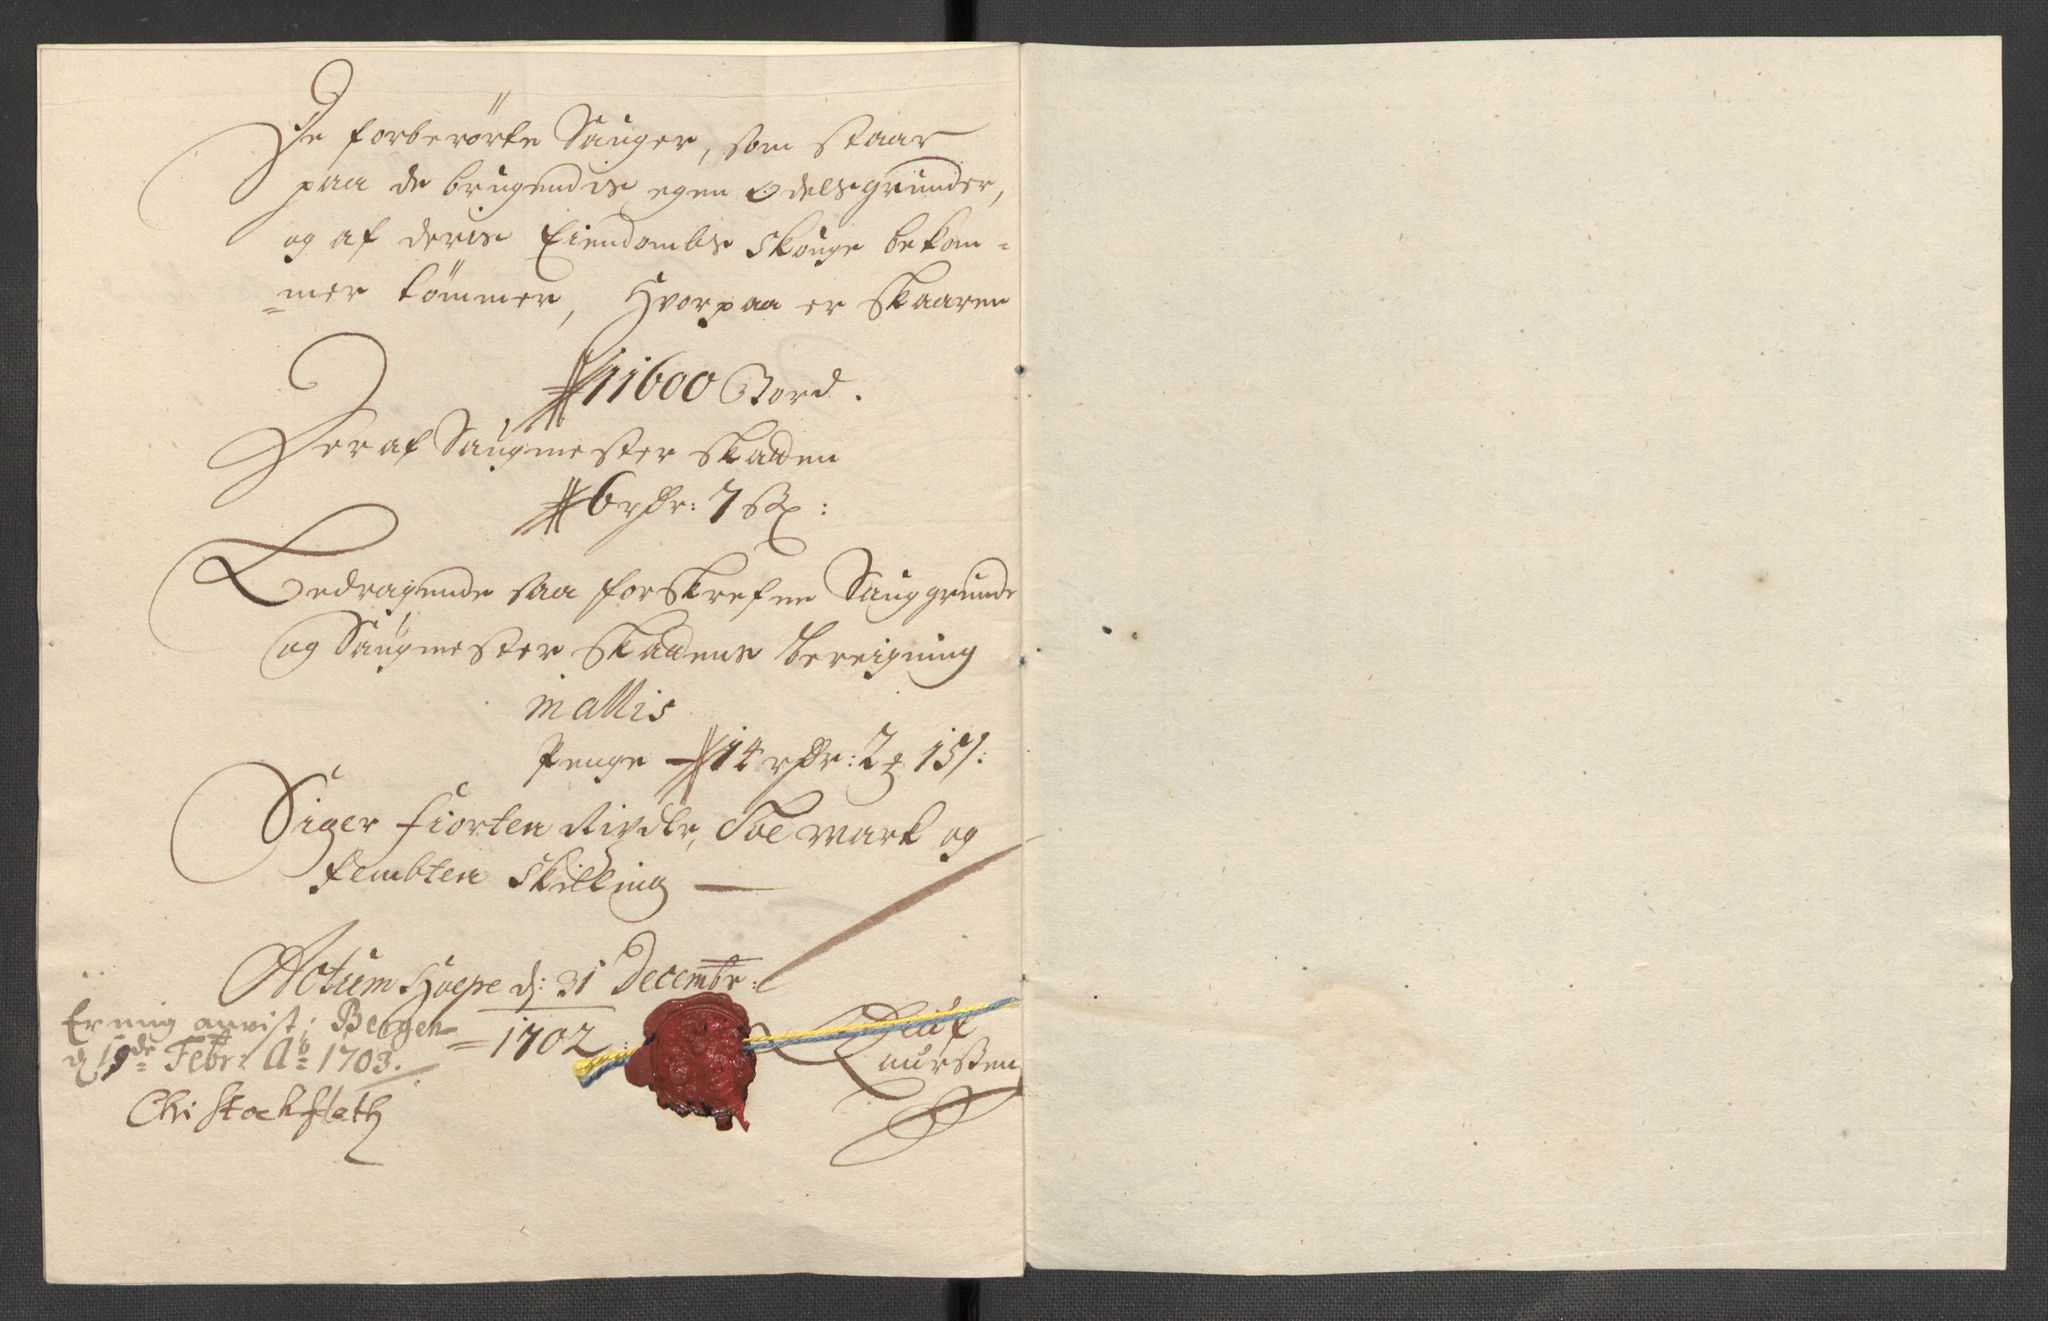 De forberörte Sauger, som staar
paa de brugendis egen Odelsgrunder,
og af deris Eiendombs Skouge bekom=
=mer tömmer, Hvorpaa er Skaaren
11600 Bord.
Deraf Saugmester Skatten
6 rdr: 7 sk:
Bedragende saa forskrefne Sauggrunde
og Saugmester Skattens bereigning
in allis
Penge 14 rdr: 2 15 s:
Siger fiorten Rixdlr, Toe mark og
fembten Skilling
Actum Hoepe d: 31 Decembr:
=1702
Er mig anvist i Bergen
d 19de Febr: Ao 1703.
Chr Stockfleth
Laurssen